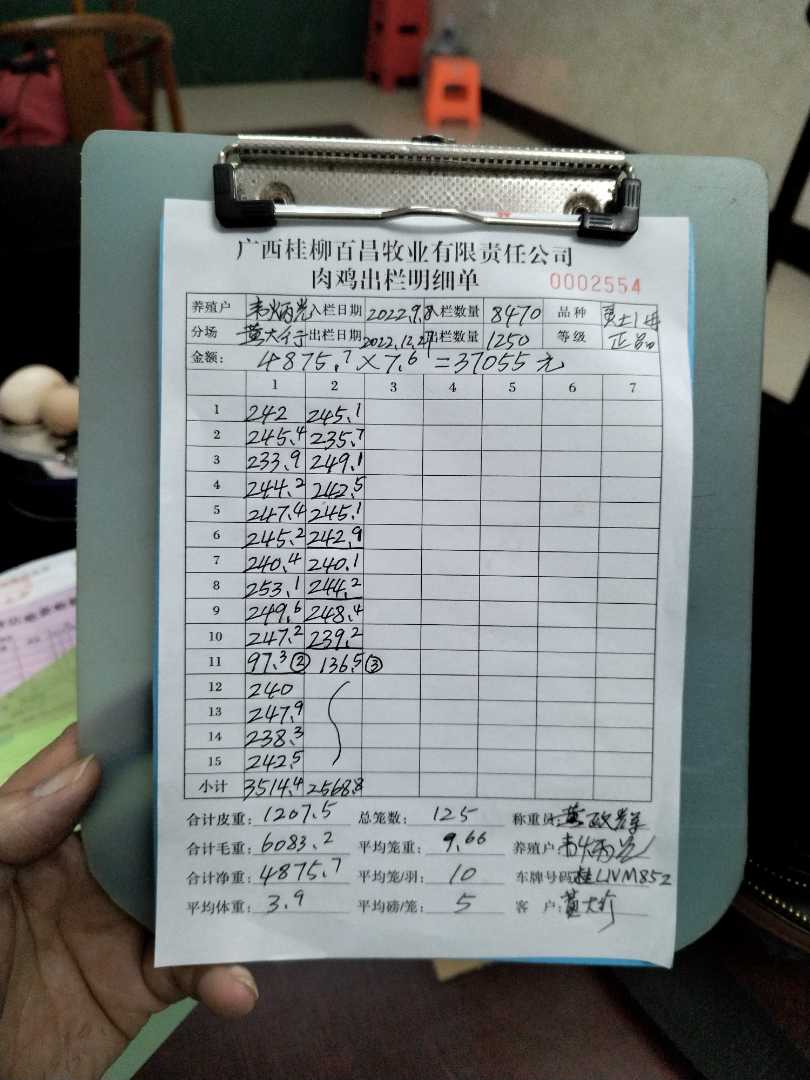 广西桂柳百昌牧业有限责任公司
肉鸡出栏明细单 0002554
养殖户 韦炳光 入栏日期 2022.9.8 入栏数量 8470 品种
分场 黄大行 出栏日期 2022.12.27 出栏数量 1250 等级 正品
金额: 4875.7×7.6=37055元
1 2 3 4 5 6 7
1 242 245.1
2 245.4 235.7
3 233.9 249.1
4 244.2 242.5
5 247.4 245.1
6 245.2 242.9
7 240.4 240.1
8 253.1 244.2
9 249.6 248.4
10 247.2 239.2
11 97.3② 136.5③
12 240
13 247.9
14 238.3
15 242.5
小计 3514.4 2568.8
合计皮重: 1207.5 总笼数: 125 称重员: 黄
合计毛重: 6083.2 平均笼重: 9.66 养殖户: 韦炳光
合计净重: 4875.7 平均笼/羽: 10 车牌号码: 桂LNM852
平均体重: 3.9 平均磅/笼: 5 客户: 黄大行